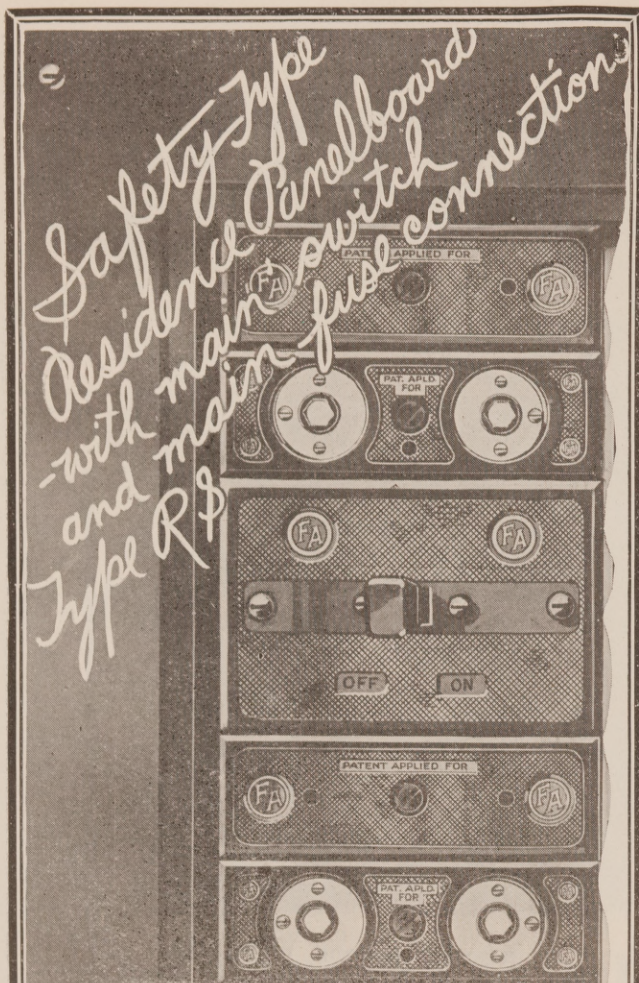 Safety Type
Residence Panelboard
-with main switch
and main fuse connections
Type RS
PATENT APPLIED FOR
FA FA
PAT. APLD.
FOR
FA FA
OFF ON
PATENT APPLIED FOR
FA FA
PAT. APLD.
FOR